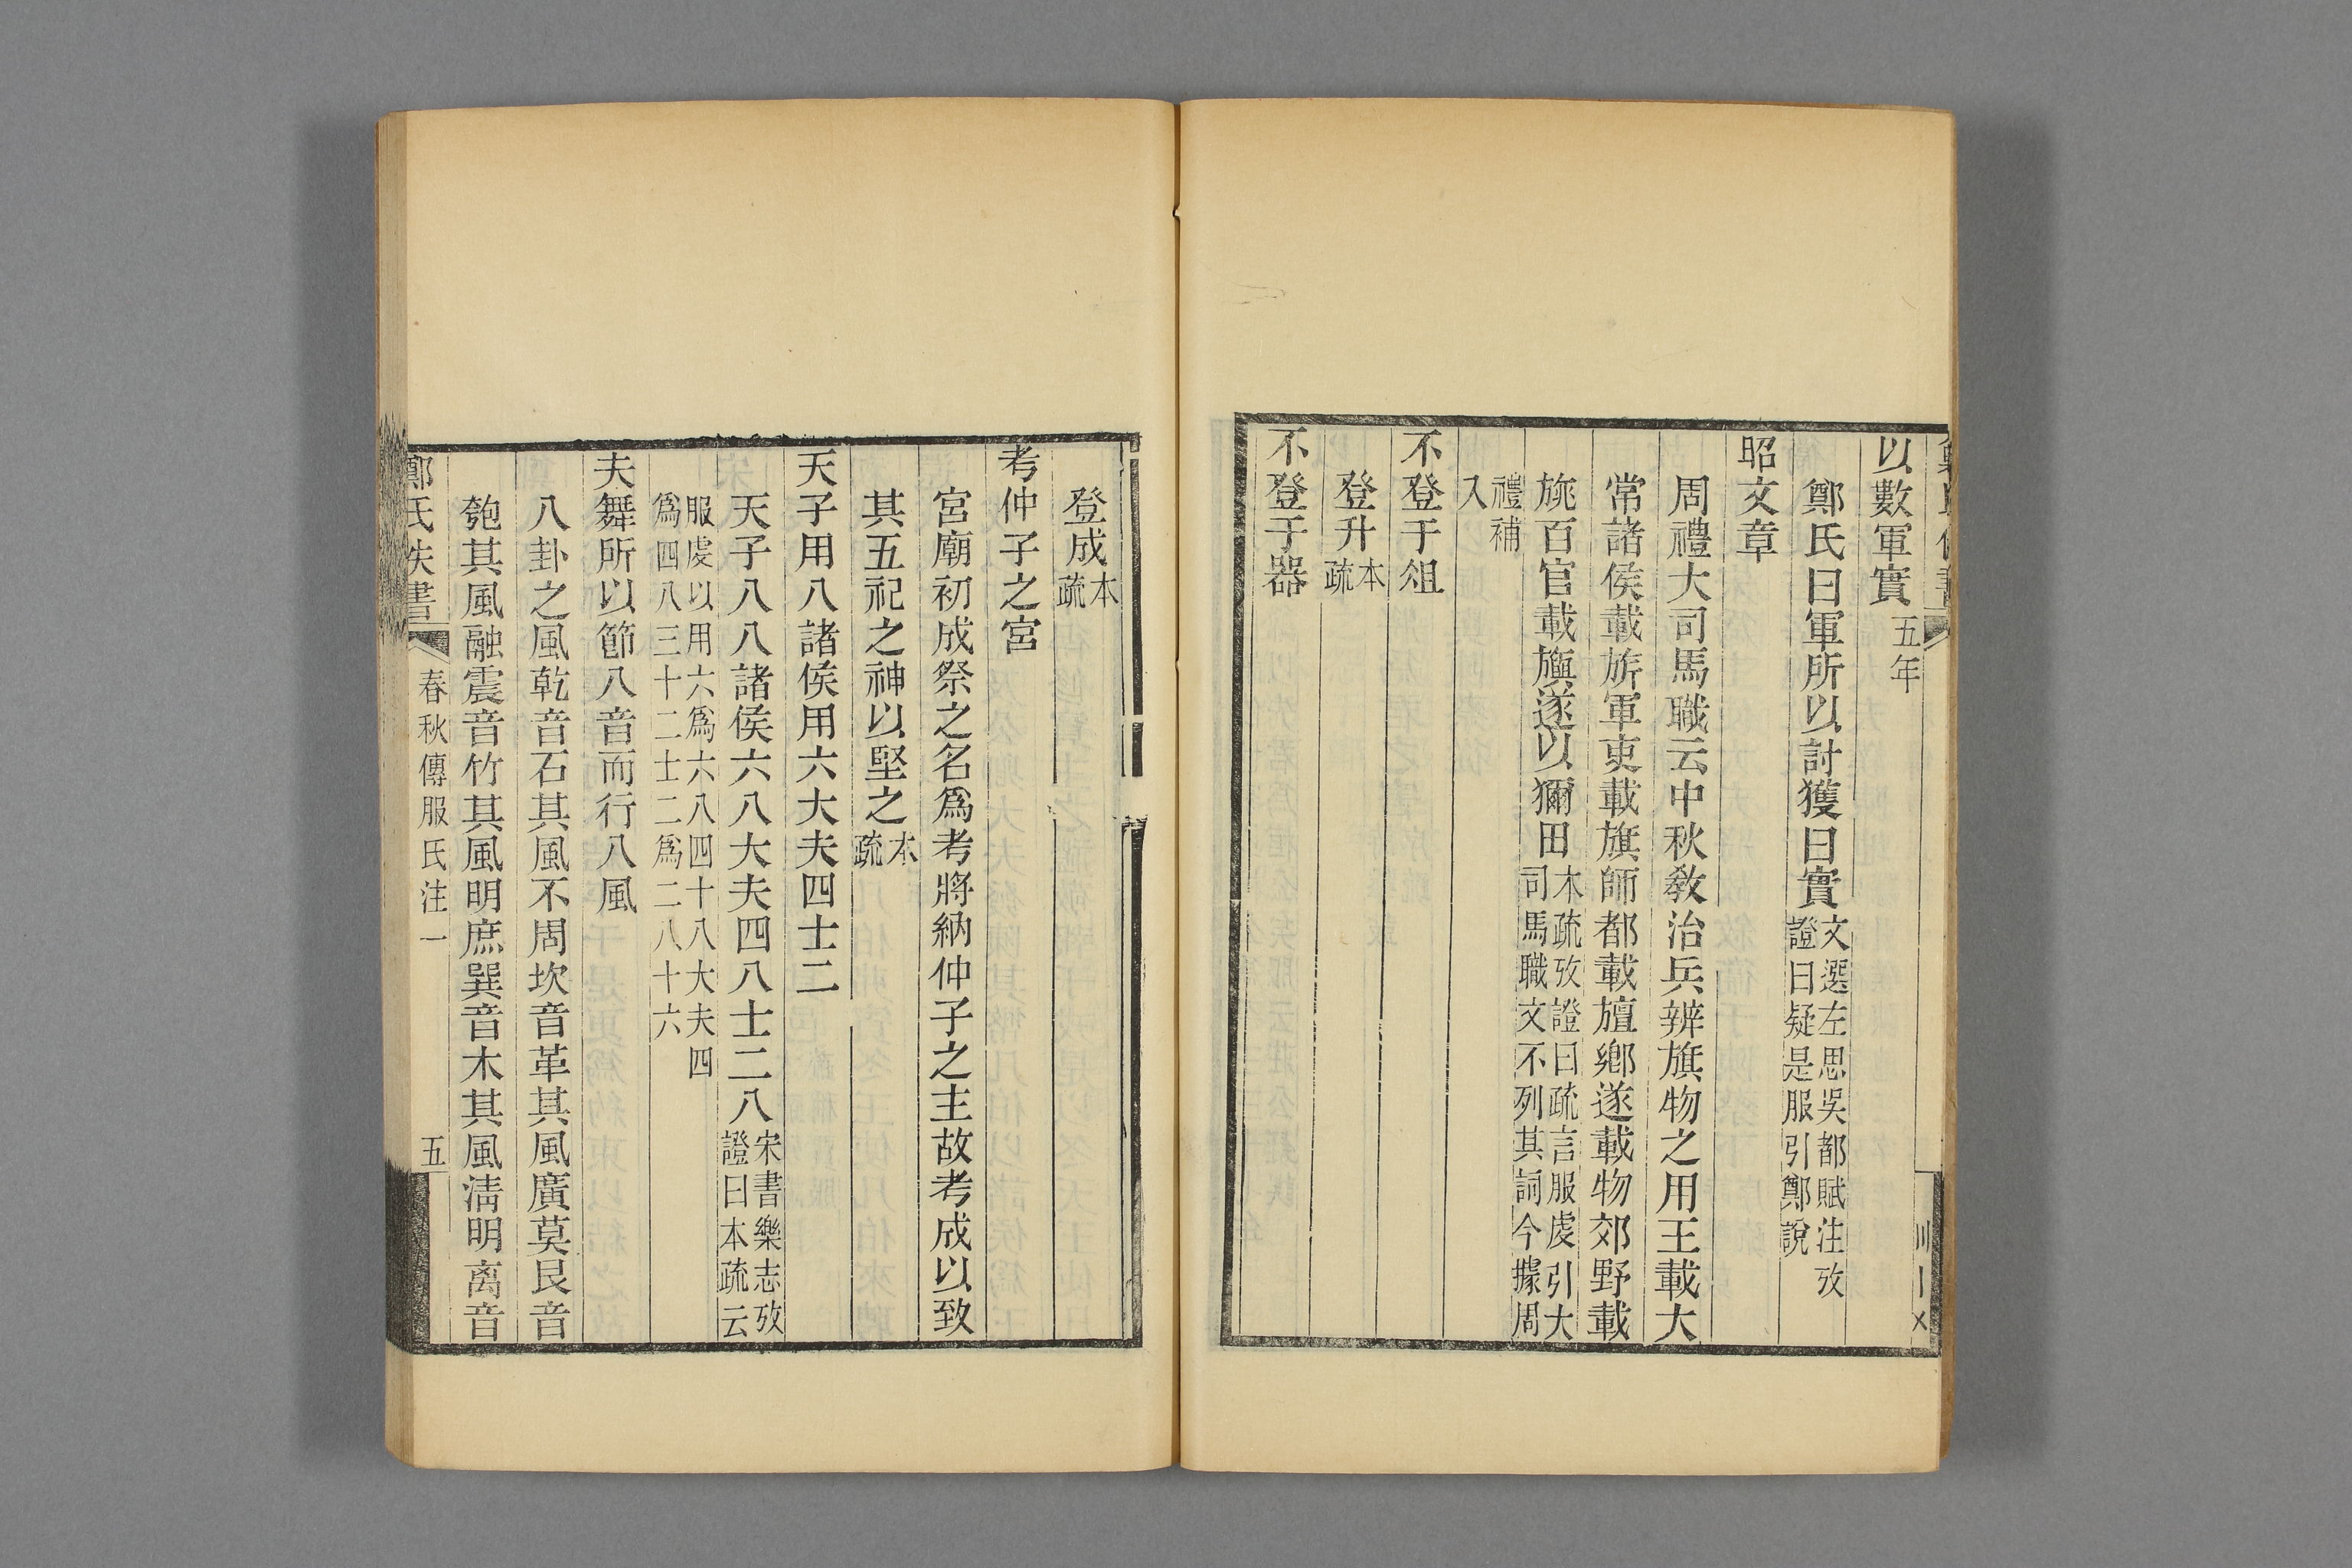 以數軍實五年
鄭氏曰軍所以討獲曰實文選左思吳都賦注攷
證曰疑是服引鄭說
昭文章
周禮大司馬職云中秋敎治兵辨旗物之用王載大
常諸侯載旂軍吏載旗師都載旜鄕遂載物郊野載
旐百官載旟遂以獮田本疏攷證曰疏言服虔引大
司馬職文不列其詞今據周
禮補
入
不登于俎
登升本
疏
不登于器
登成本
疏
考仲子之宮
宮廟初成祭之名爲考將納仲子之主故考成以致
其五祀之神以堅之本
疏
天子用八諸侯用六大夫四士二
天子八八諸侯六八大夫四八士二八宋書樂志攷
證曰本疏云
服虔以用六爲六八四十八大夫四
爲四八三十二士二爲二八十六
夫舞所以節八音而行八風
八卦之風乾音石其風不周坎音革其風廣莫艮音
匏其風融震音竹其風明庶巽音木其風淸明离音
鄭氏佚書 春秋傳服氏注一 五